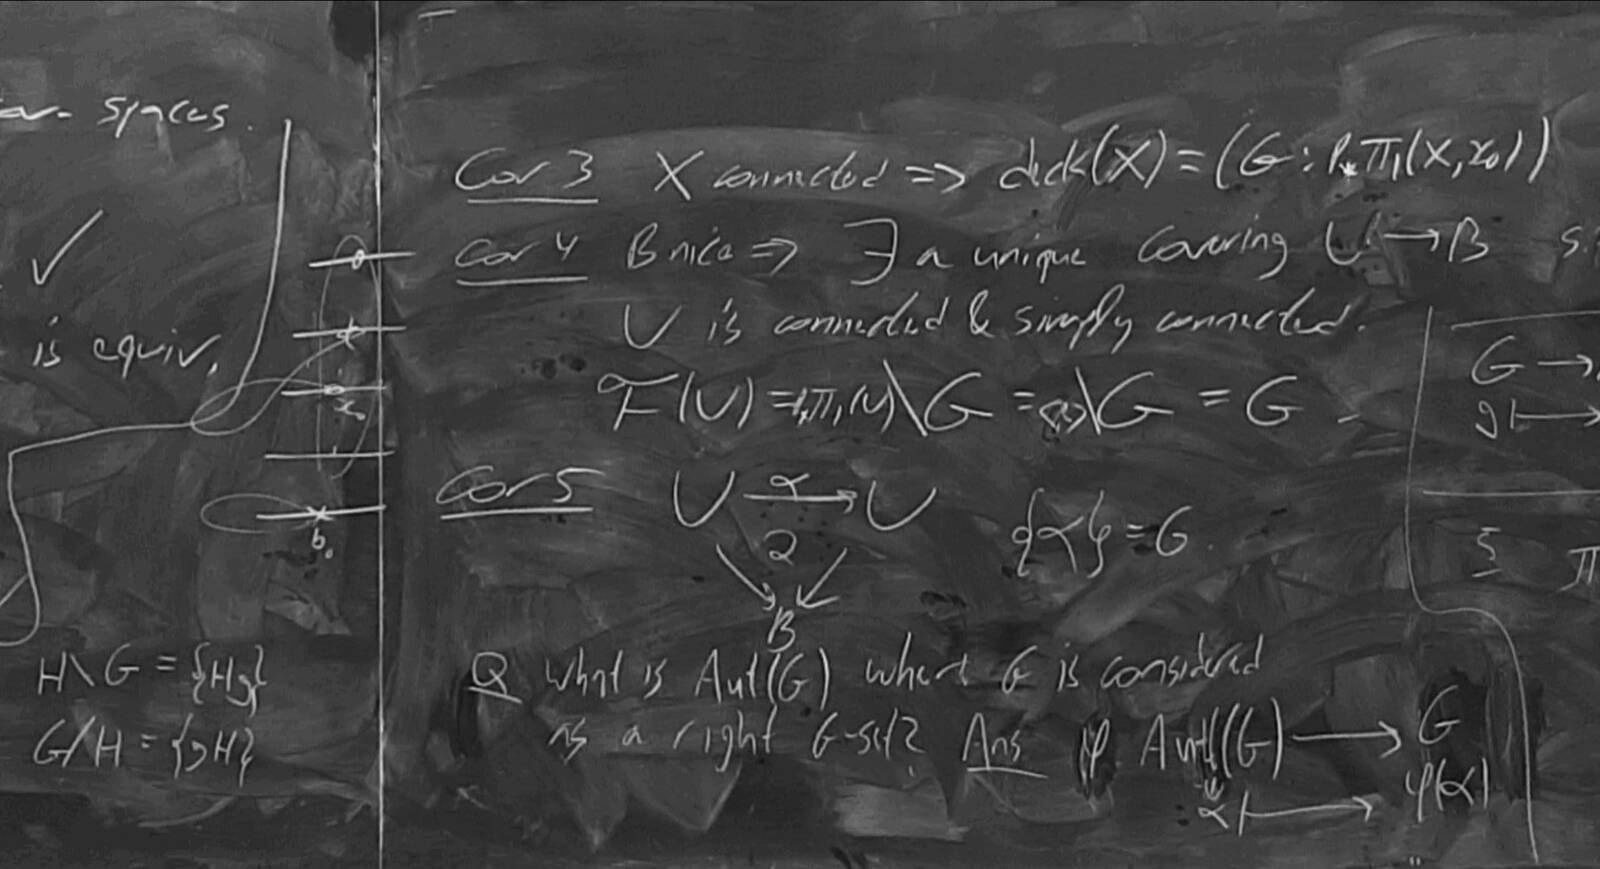 spaces.
✓
is equiv.
x₀
b₀
H\G = {Hg}
G/H = {gH}
Cor 3 X connected => deck(X) = (G : P* π₁(X, x₀))
Cor 4 B nice => ∃ a unique covering U → B
U is connected & simply connected.
F(U) = P*π₁(U)\G = \G = G
Cor 5 U —α→ U {α} = G.
B
Q What is Aut(G) where G is considered
as a right G-set? Ans φ: Aut(G) → G
α ↦ φ(α)
G →
g ↦
ξ π